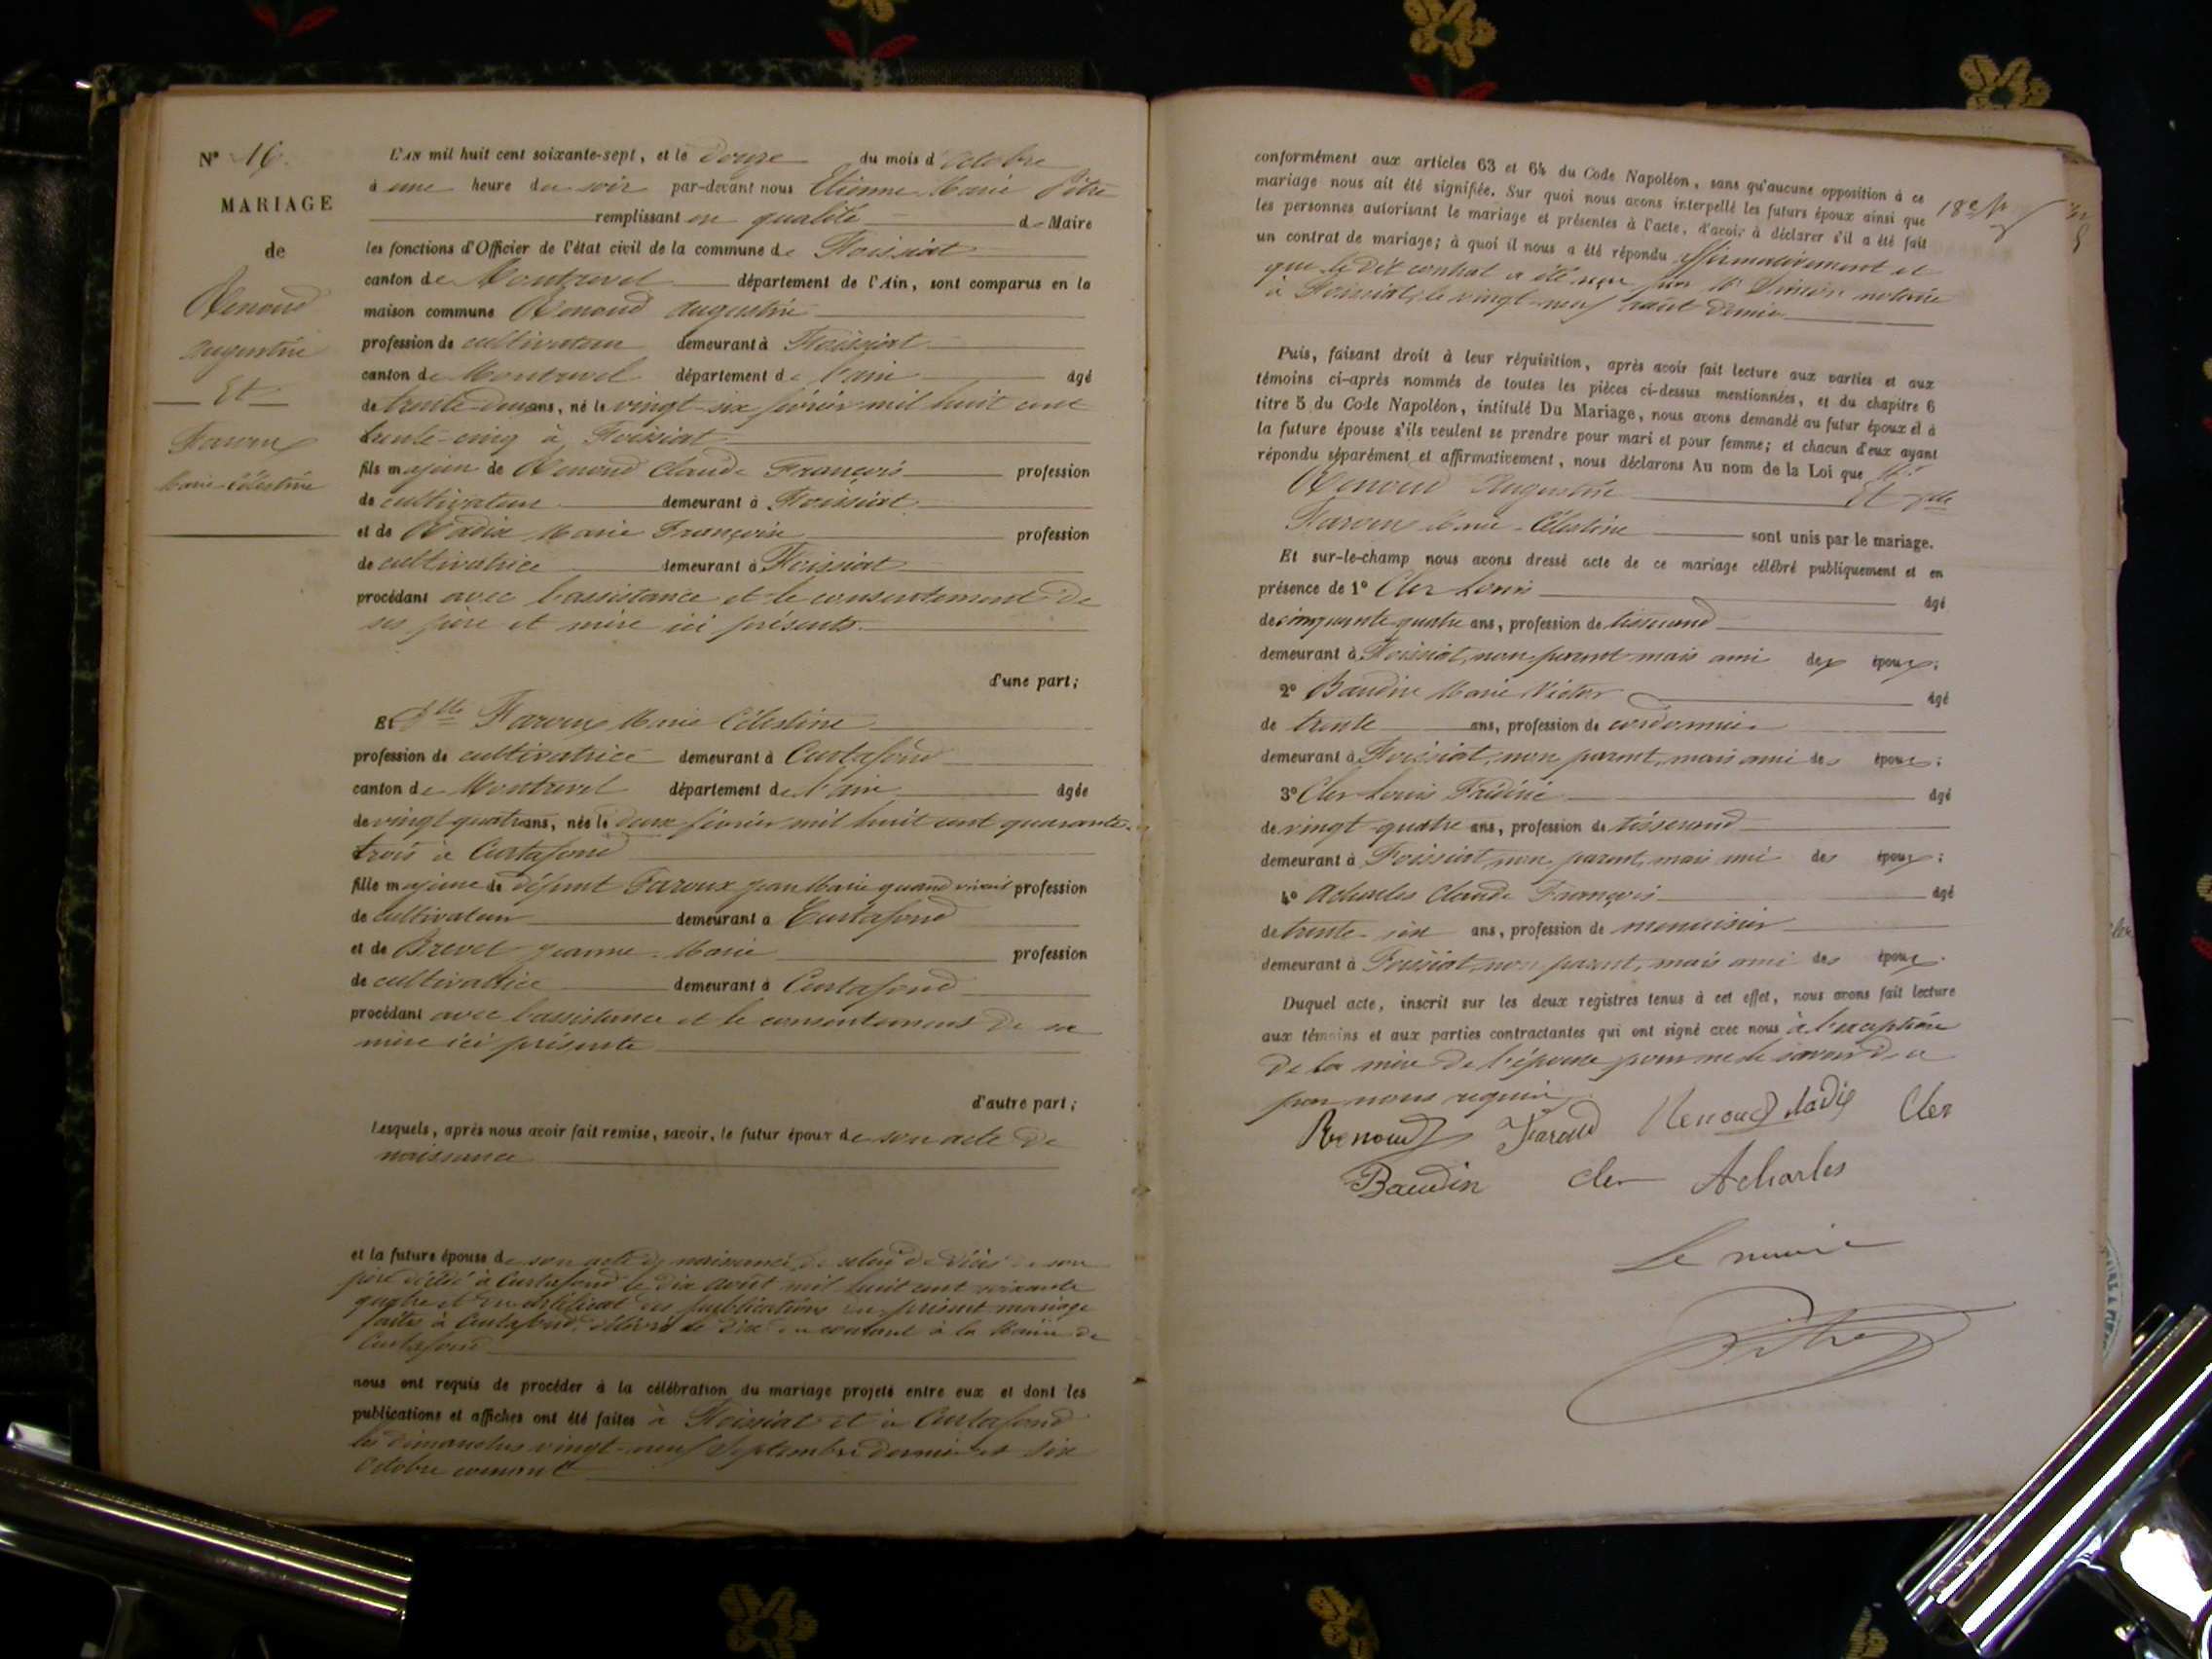 N° 16.
MARIAGE
de
Renoud
Augustin
Et
Faroux
Marie Célestine
L'AN mil huit cent soixante-sept, et le douze du mois d'Octobre
à une heure du soir par-devant nous Etienne Marie Pitre
remplissant en qualité de Maire
les fonctions d'Officier de l'état civil de la commune de Foissiat
canton de Montrevel département de l'Ain, sont comparus en la
maison commune Renoud Augustin
profession de cultivateur demeurant à Foissiat
canton de Montrevel département de l'ain âgé
de trente-deux ans, né le vingt-six février mil huit cent
trente-cinq à Foissiat
fils majeur de Renoud Claude François profession
de cultivateur demeurant à Foissiat
et de Radix Marie Françoise profession
de cultivatrice demeurant à Foissiat
procédant avec l'assistance et le consentement de
ses père et mère ici présents.
d'une part;
Et Dlle Faroux Marie Célestine
profession de cultivatrice demeurant à Curtafond
canton de Montrevel département de l'ain âgée
de vingt quatre ans, née le deux février mil huit cent quarante-
trois à Curtafond
fille majeure de défunt Faroux Jean Marie quand vivait profession
de cultivateur demeurant à Curtafond
et de Brevet Jeanne-Marie profession
de cultivatrice demeurant à Curtafond
procédant avec l'assistance et le consentement de sa
mère ici présente
d'autre part;
Lesquels, après nous avoir fait remise, savoir, le futur époux de son acte de
naissance
et la future épouse de son acte de naissance, de celui de décès de son
père décédé à Curtafond le dix août mil huit cent soixante
quatre et du certificat des publications du présent mariage
faites à Curtafond, délivré le dix du courant à la Mairie de
Curtafond
nous ont requis de procéder à la célébration du mariage projeté entre eux et dont les
publications et affiches ont été faites à Foissiat et à Curtafond
les dimanches vingt-neuf Septembre dernier et six
Octobre courant
conformément aux articles 63 et 64 du Code Napoléon, sans qu'aucune opposition à ce
mariage nous ait été signifiée. Sur quoi nous avons interpellé les futurs époux ainsi que
les personnes autorisant le mariage et présentes à l'acte, d'avoir à déclarer s'il a été fait
un contrat de mariage; à quoi il nous a été répondu affirmativement et
que le dit contrat a été reçu par Me notaire
à Foissiat, le vingt-neuf août dernier
Puis, faisant droit à leur réquisition, après avoir fait lecture aux parties et aux
témoins ci-après nommés de toutes les pièces ci-dessus mentionnées, et du chapitre 6
titre 5 du Code Napoléon, intitulé Du Mariage, nous avons demandé au futur époux et à
la future épouse s'ils veulent se prendre pour mari et pour femme; et chacun d'eux ayant
répondu séparément et affirmativement, nous déclarons Au nom de la Loi que Mr
Renoud Augustin Et Dlle
Faroux Marie-Célestine sont unis par le mariage.
Et sur-le-champ nous avons dressé acte de ce mariage célébré publiquement et en
présence de 1° Cler Louis âgé
de cinquante-quatre ans, profession de tisserand
demeurant à Foissiat, non parent mais ami des époux;
2° Baudin Marie Victor âgé
de trente ans, profession de cordonnier
demeurant à Foissiat, non parent, mais ami des époux;
3° Cler Louis Frédéric âgé
de vingt-quatre ans, profession de tisserand
demeurant à Foissiat, non parent, mais ami des époux;
4° Acharles Claude François âgé
de trente-six ans, profession de menuisier
demeurant à Foissiat, non parent, mais ami des époux.
Duquel acte, inscrit sur les deux registres tenus à cet effet, nous avons fait lecture
aux témoins et aux parties contractantes qui ont signé avec nous à l'exception
de la mère de l'épouse pour ne le savoir de ce
par nous requise.
Renoud Faroud Renoud Radix Cler
Baudin Cler Acharles
Le maire
Pitre